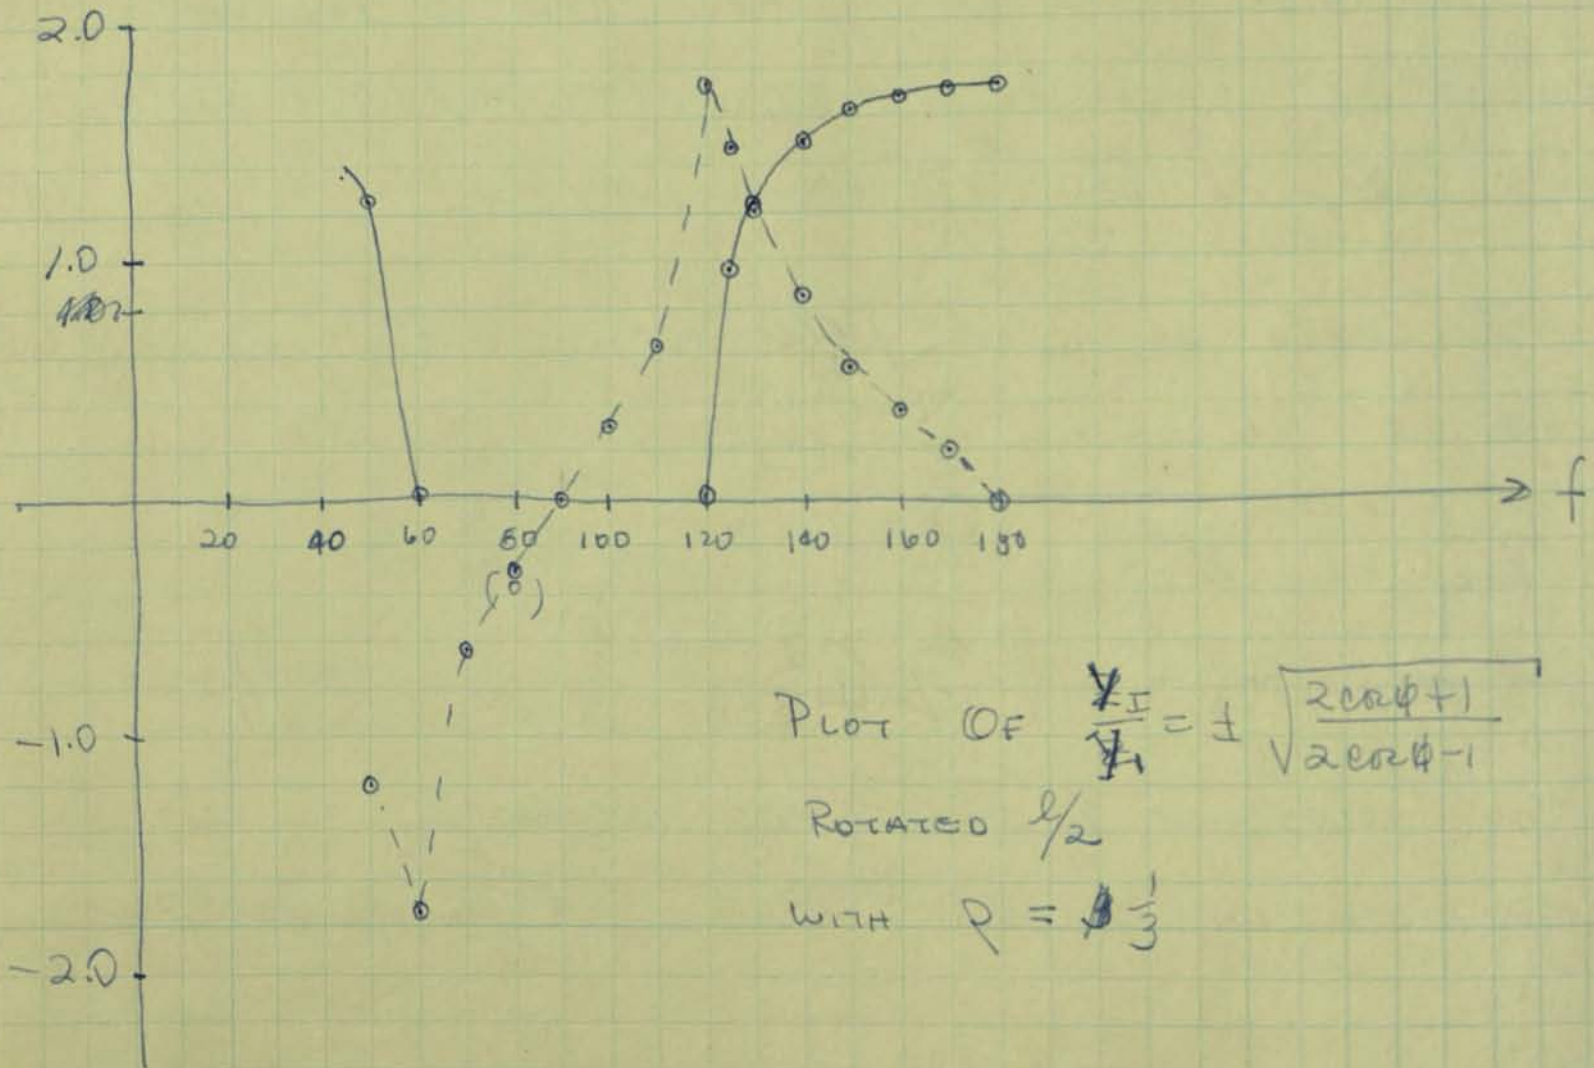 2.0
1.0
f
20 40 60 80 100 120 140 160 180
( )
-1.0
-2.0
PLOT OF Y_I/Y_1 = ± √(2cosφ+1)/(2cosφ-1)
ROTATED l/2
WITH ρ = 1/3